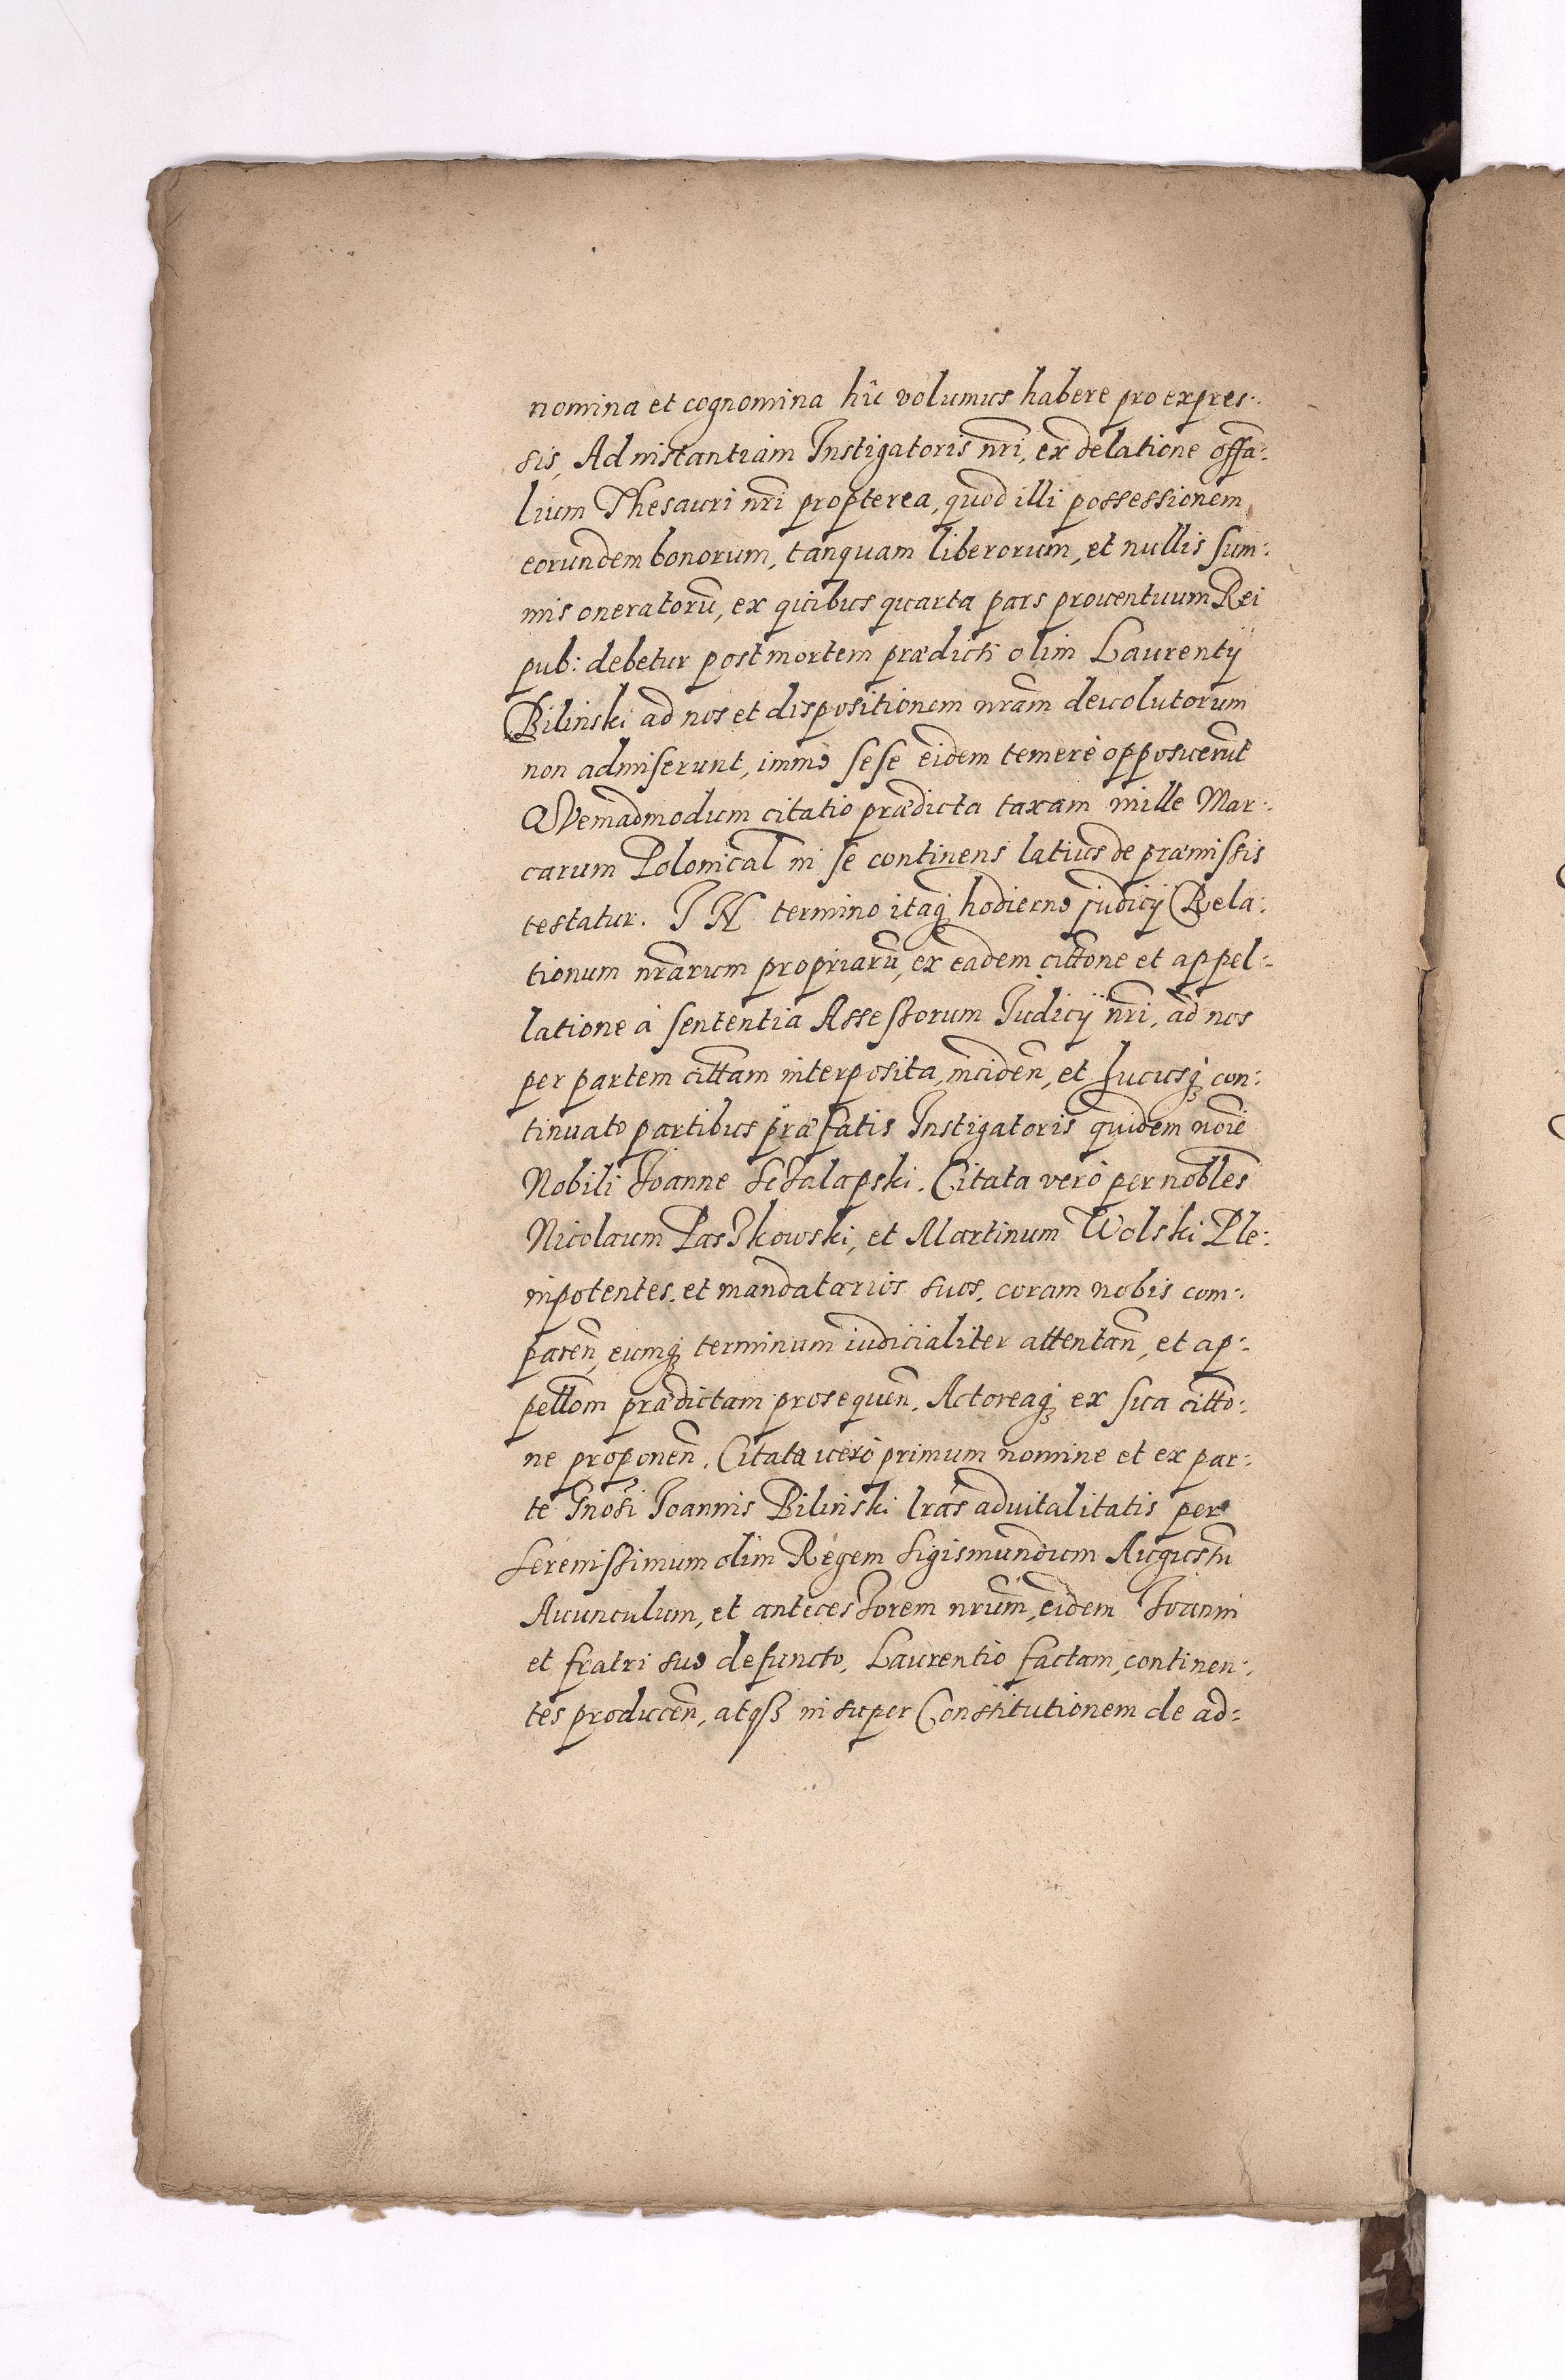 nomina et cognomina hîc volumus habere pro expres:
sis, Ad instantiam Instigatoris nr̃i, ex delatione offa:
lium Thesauri nr̃i propterea, quod illi possessionem
eorundem bonorum, tanquam liberorum, et nullis sum:
mis oneratorũ, ex quibus quarta pars prouentuum Rei
pub: debetur post mortem prædicti olim Laurentij
Bilinski ad nos et dispositionem nr̃am deuolutorum
non admiserunt, immò sese eidem temerè opposuerũt
QVemadmodum citatio prædicta taxam mille Mar:
carum Polonical in se continens latius de præmissis
testatur. IN termino itaq̃ hodierno judicij Rela:
tionum nr̃arum propriarũ, ex eadem cittõne et appel:
latione à sententia Assessorum Iudicij nr̃i, ad nos
per partem cittam interposita, inciden̄, et hucusq̃ con:
tinuato partibus præfatis Instigatoris quidem noĩe
Nobili Joanne Szalapski. Citata verò per nobles
Nicolaum Paszkowski, et Martinum Wolski Ple:
nipotentes, et mandatarios suos, coram nobis com:
paren̄, eumq̃ terminum iudicialiter attentan̄, et ap:
pellõm prædictam prosequen̄. Actoreaq̃ ex sua cittõ:
ne proponen̄. Citata verò primum nomine et ex par:
te Gnosi Joannis Bilinski lr̃as aduitalitatis per
Serenissimum olim Regem Sigismundum Augustũ
Auunculum, et antecessorem nr̃um, eidem Joanni
et fratri suo defuncto, Laurentio factam, continen:
tes producen̄, atqꝫ insuper Constitutionem de ad: